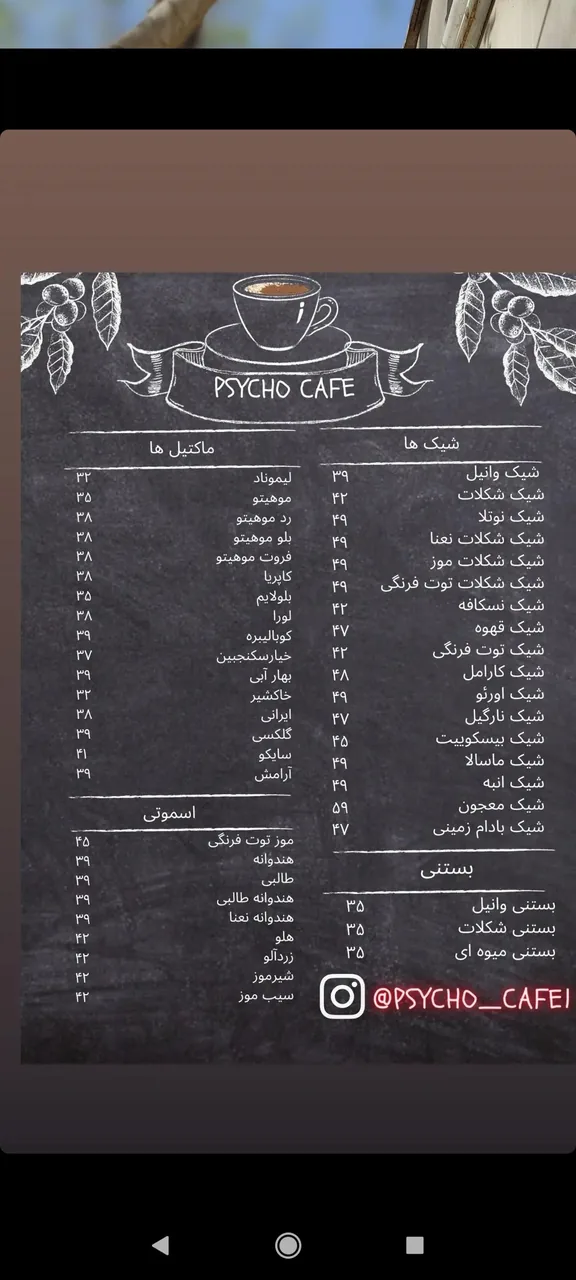 PSYCHO CAFE
شیک ها
شیک وانیل ۳۹
شیک شکلات ۴۲
شیک نوتلا ۴۹
شیک شکلات نعنا ۴۹
شیک شکلات موز ۴۹
شیک شکلات توت فرنگی ۴۹
شیک نسکافه ۴۲
شیک قهوه ۴۷
شیک توت فرنگی ۴۲
شیک کارامل ۴۸
شیک اورئو ۴۹
شیک نارگیل ۴۷
شیک بیسکوییت ۴۵
شیک ماسالا ۴۹
شیک انبه ۴۹
شیک معجون ۵۹
شیک بادام زمینی ۴۷
بستنی
بستنی وانیل ۳۵
بستنی شکلات ۳۵
بستنی میوه ای ۳۵
@PSYCHO_CAFE1
ماکتیل ها
لیموناد ۳۲
موهیتو ۳۵
رد موهیتو ۳۸
بلو موهیتو ۳۸
فروت موهیتو ۳۸
کاپریا ۳۸
بلولایم ۳۵
لورا ۳۸
کوبالیبره ۳۹
خیارسکنجبین ۳۷
بهار آبی ۳۹
خاکشیر ۳۲
ایرانی ۳۸
گلکسی ۳۹
سایکو ۴۱
آرامش ۳۹
اسموتی
موز توت فرنگی ۴۵
هندوانه ۳۹
طالبی ۳۹
هندوانه طالبی ۳۹
هندوانه نعنا ۳۹
هلو ۴۲
زردآلو ۴۲
شیرموز ۴۲
سیب موز ۴۲